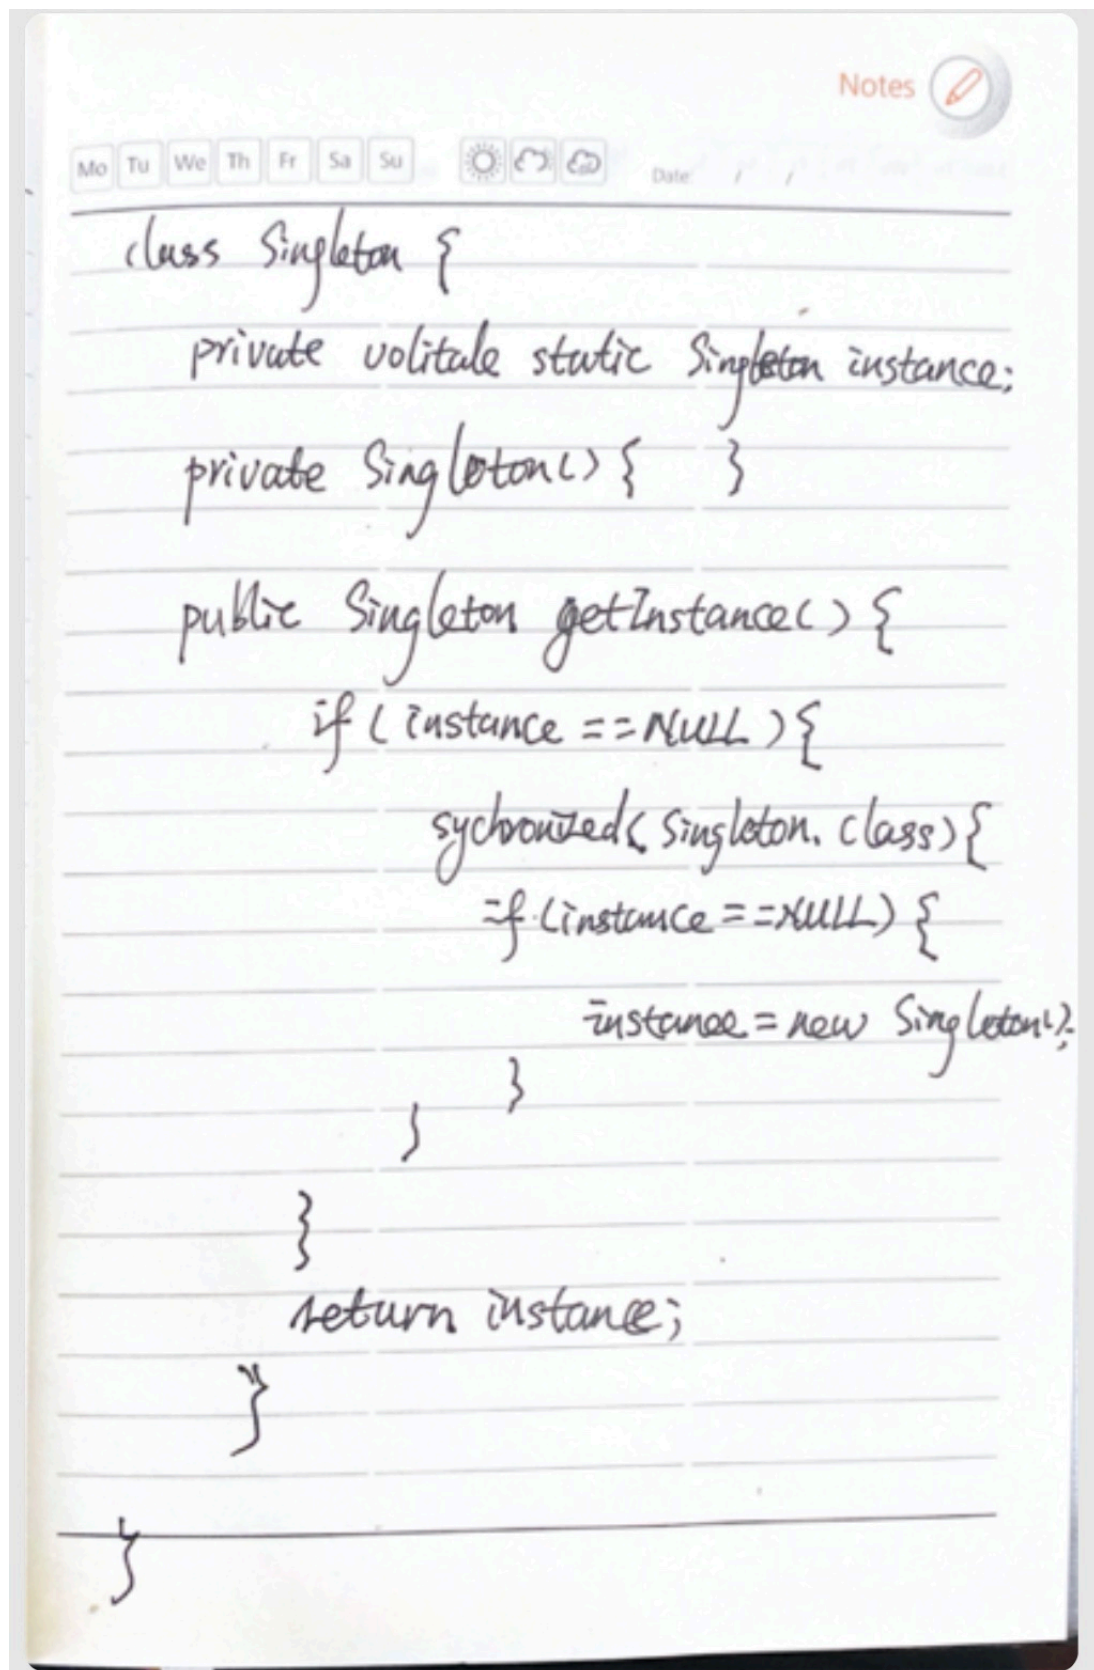 Notes
Mo Tu We Th Fr Sa Su Date: / /
class Singleton {
private volitale static Singleton instance;
private Singleton() { }
public Singleton getInstance() {
if ( instance == NULL ) {
sychronized( Singleton. class) {
if (instance == NULL) {
instance = new Singleton();
}
}
}
return instance;
}
}